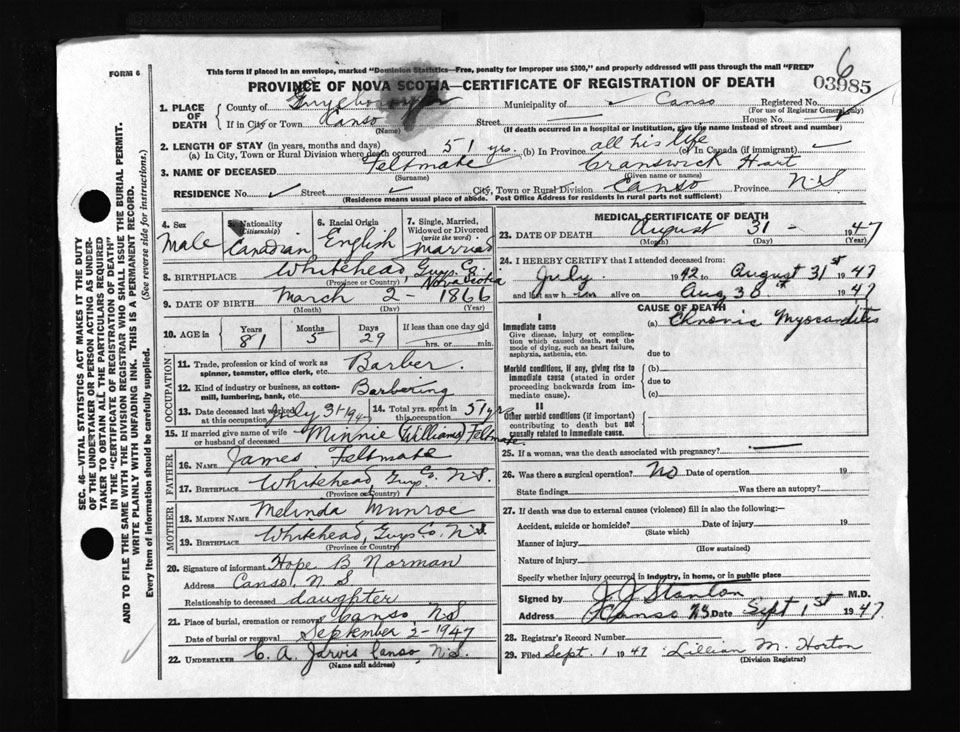 FORM 6
This form if placed in an envelope, marked "Dominion Statistics—Free, penalty for improper use $300," and properly addressed will pass through the mail "FREE"
6
PROVINCE OF NOVA SCOTIA—CERTIFICATE OF REGISTRATION OF DEATH
03985
1. PLACE OF DEATH
County of Guysborough Municipality of ✓ Canso Registered No.
(For use of Registrar General only)
If in City or Town Canso Street House No.
(Name) (If death occurred in a hospital or institution, give the name instead of street and number)
2. LENGTH OF STAY (in years, months and days)
(a) In City, Town or Rural Division where death occurred 51 yrs. (b) In Province all his life (c) In Canada (if immigrant) ✓
3. NAME OF DECEASED Feltmate Cranswick Hart
(Surname) (Given name or names)
RESIDENCE No. ✓ Street ✓ City, Town or Rural Division Canso Province N.S.
(Residence means usual place of abode. Post Office Address for residents in rural parts not sufficient)
4. Sex Male
5. Nationality Citizenship Canadian
6. Racial Origin English
7. Single, Married, Widowed or Divorced (write the word) Married
8. BIRTHPLACE Whitehead, Guys. Co. Nova Scotia
(Province or Country)
9. DATE OF BIRTH March 2 - 1866
(Month) (Day) (Year)
10. AGE in Years 81 Months 5 Days 29 If less than one day old hrs. or min.
OCCUPATION
11. Trade, profession or kind of work as spinner, teamster, office clerk, etc. Barber.
12. Kind of industry or business, as cotton-mill, lumbering, bank, etc. Barbering
13. Date deceased last worked at this occupation July 31-1947 14. Total yrs. spent in this occupation 51 yrs
15. If married give name of wife or husband of deceased Minnie (Williams) Feltmate
FATHER
16. NAME James Feltmate
17. BIRTHPLACE Whitehead, Guys. Co. N.S.
(Province or Country)
MOTHER
18. MAIDEN NAME Melinda Munroe
19. BIRTHPLACE Whitehead, Guys Co. N.S.
(Province or Country)
20. Signature of informant Hope B Norman
Address Canso, N.S
Relationship to deceased daughter
21. Place of burial, cremation or removal Canso, N.S
Date of burial or removal September 2-1947
22. UNDERTAKER C. A. Jarvis Canso, N.S.
(Name and address)
MEDICAL CERTIFICATE OF DEATH
23. DATE OF DEATH August 31 - 1947
(Month) (Day) (Year)
24. I HEREBY CERTIFY that I attended deceased from:
July 1942 to August 31st 1947
and last saw him alive on Aug 30th 1947
CAUSE OF DEATH
I
Immediate cause (a) Chronic Myocarditis
Give disease, injury or complication which caused death, not the mode of dying, such as heart failure, asphyxia, asthenia, etc.
due to
Morbid conditions, if any, giving rise to immediate cause (stated in order proceeding backwards from immediate cause).
(b)
due to
(c)
II
Other morbid conditions (if important) contributing to death but not causally related to immediate cause.
25. If a woman, was the death associated with pregnancy?
26. Was there a surgical operation? No Date of operation 19
State findings Was there an autopsy?
27. If death was due to external causes (violence) fill in also the following:—
Accident, suicide or homicide? Date of injury 19
(State which)
Manner of injury
(How sustained)
Nature of injury
Specify whether injury occurred in industry, in home, or in public place
Signed by J J Stanton M.D.
Address Canso N.S. Date Sept 1st 1947
28. Registrar's Record Number
29. Filed Sept. 1 1947 Lillian M. Horton
(Division Registrar)
SEC. 46—VITAL STATISTICS ACT MAKES IT THE DUTY
OF THE UNDERTAKER OR PERSON ACTING AS UNDER-
TAKER TO OBTAIN ALL THE PARTICULARS REQUIRED
IN THE "CERTIFICATE OF REGISTRATION OF DEATH"
AND TO FILE THE SAME WITH THE DIVISION REGISTRAR WHO SHALL ISSUE THE BURIAL PERMIT.
WRITE PLAINLY WITH UNFADING INK. THIS IS A PERMANENT RECORD.
Every item of information should be carefully supplied. (See reverse side for instructions.)